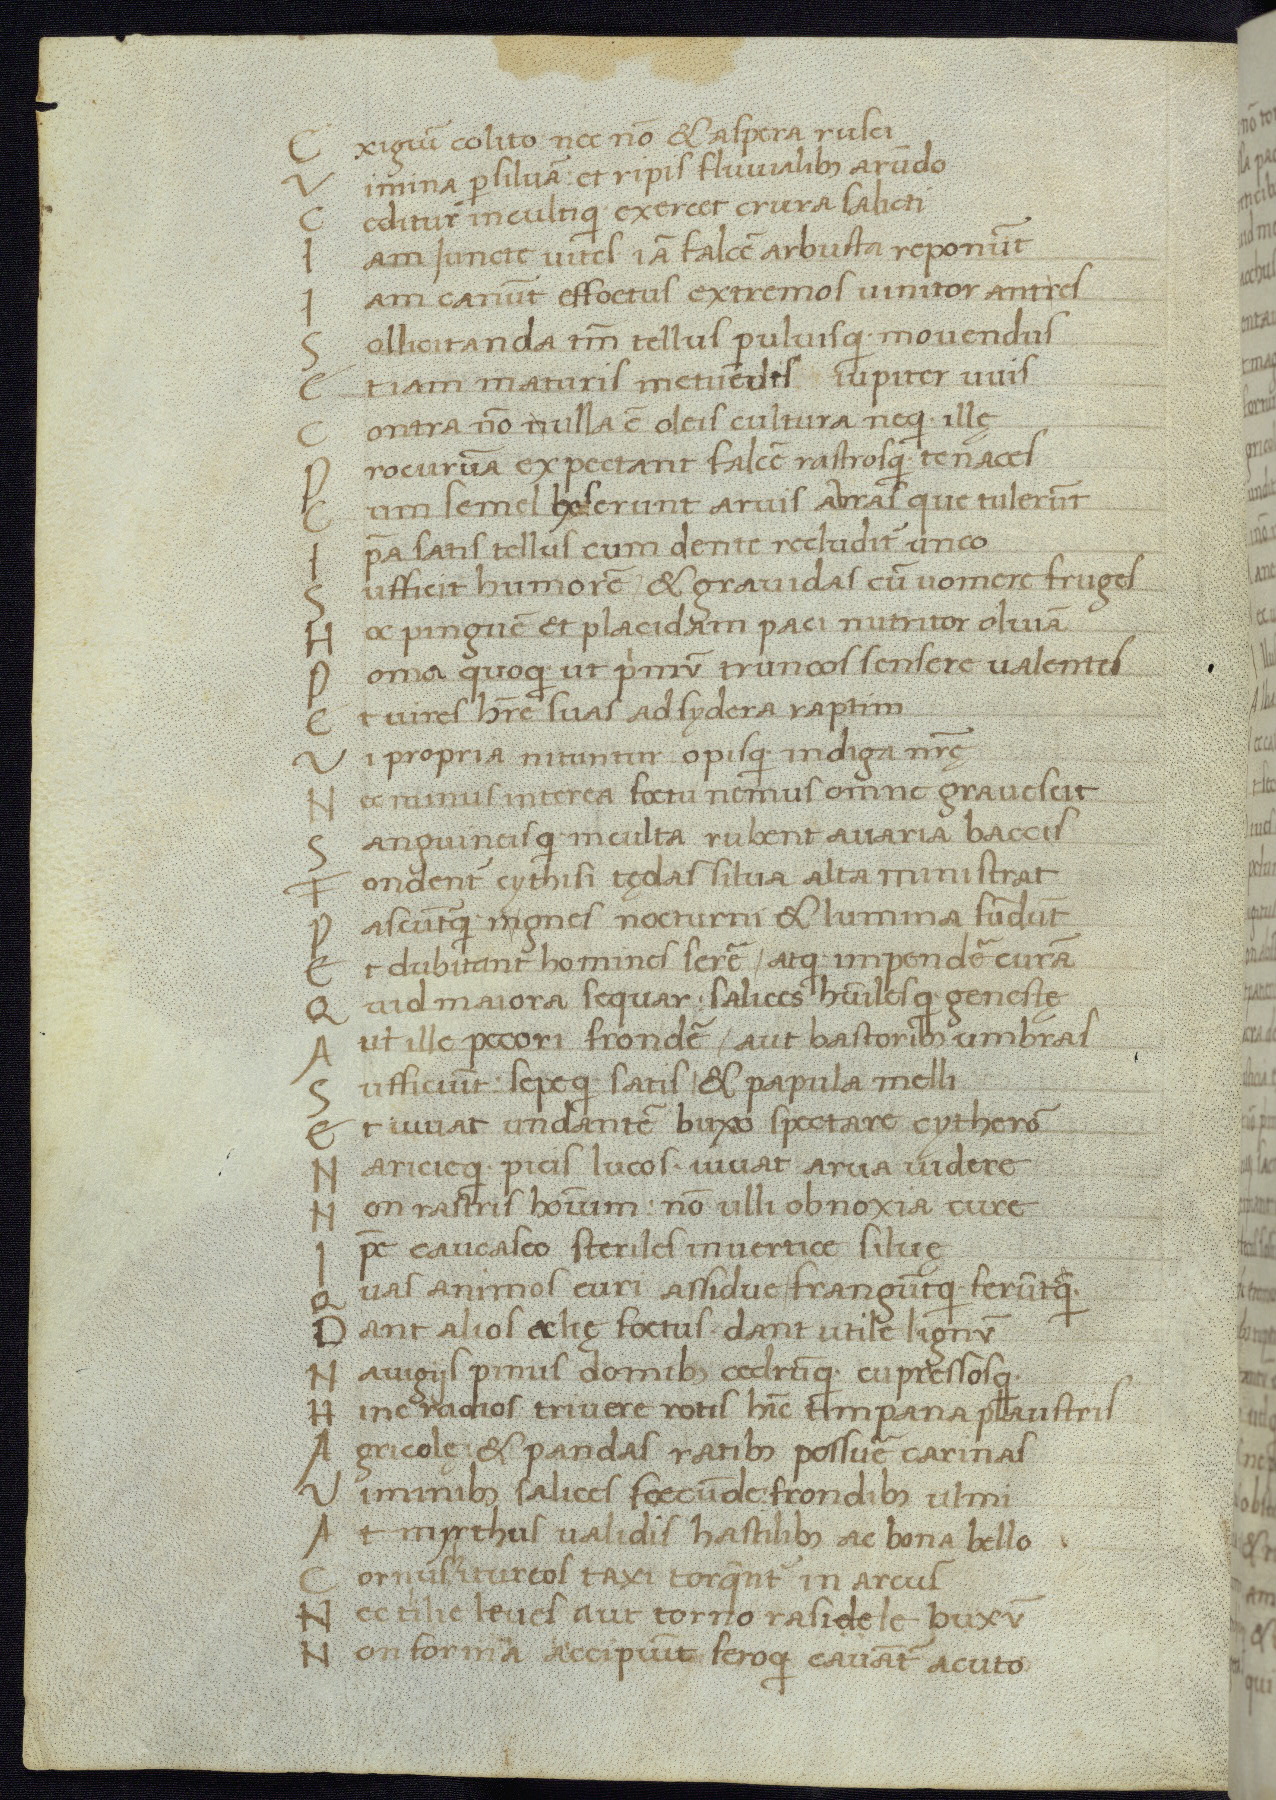 E xiguū colito nec nō & aspera rusci
V imina p siluā: et ripis fluuialib; arūdo
C editur incultiq; exercet crura salicti
I am iuncte uites iā falcē arbusta reponūt
I am canūt effoetus extremos uinitor antres
S ollicitanda tm̄ tellus puluisq; mouendus
E t iam maturis metuēdus iupiter uuis
C ontra nō nulla ē oleis cultura neq; illę
P rocuruā expectant falcē rastrosq; tenaces
C um semel heserunt aruis auras que tulerūt
I pa satis tellus cum dente recludit̄ unco
S ufficit humorē / & grauidas cū uomere fruges
H oc pinguē et placidam paci nutritor oliuā
P oma quoq; ut pimū truncos sensere ualentes
E t uires hr̄e suas ad sydera raptim
V i propria nituntur opisq; indiga nr̄ę
N ec minus interea foetu nemus omne grauescit
S anguineisq; inculta rubent auaria baccis
T ondent̄ cythisi tędas silua alta ministrat
P ascūtq; ingnes nocturni & lumina fūdūt
E t dubitant homines serē / atq; impendē curā
Q uid maiora sequar: salices hūilesq; genestę
A ut ille pecori frondē / aut bastorib; umbras
S ufficiūt: sepeq; satis / & papula melli
E t iuuat undantē buxo spectare cytherō
N aricieq; picis lucos. iuuat arua uidere
N on rastris hoīum: nō ulli obnoxia cure
I pe caucaseo steriles in uertice siluę
Q uas animos euri assidue frangūtq; ferūtq;
D ant alios eclię foetus. dant utile lignū
N auigijs pinus domib; cedrūq; cupressosq;
H inc radios triuere rotis hīc timpana plaustris
A gricolę & pandas ratib; possuē carinas
V iminib; salices foecūde frondib; ulmi
A t myrthus ualidis hastilib; ac bona bello
C ornus itureos taxi torqūnt̄ in arcus
N ec tilie leues aut torno rasidele buxū
N on formā accipiūt feroq; cauāt̄ acuto